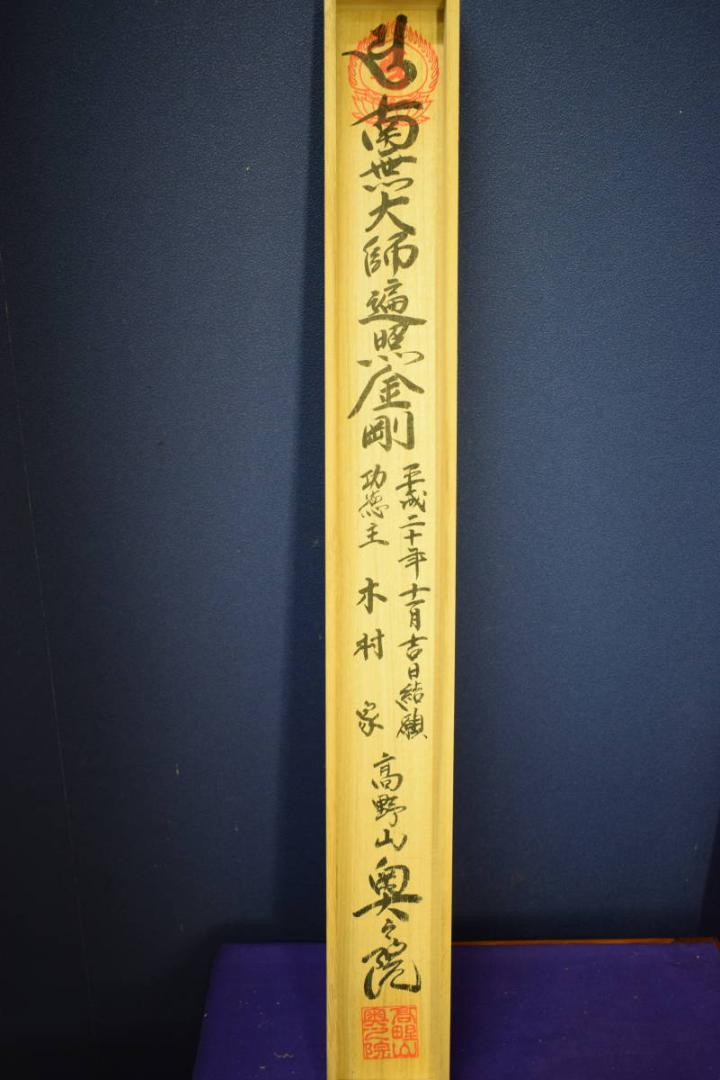 南無大師遍照金剛
平成二十年十一月吉日結願
功徳主 木村家
高野山奥之院
高野山
奥之院